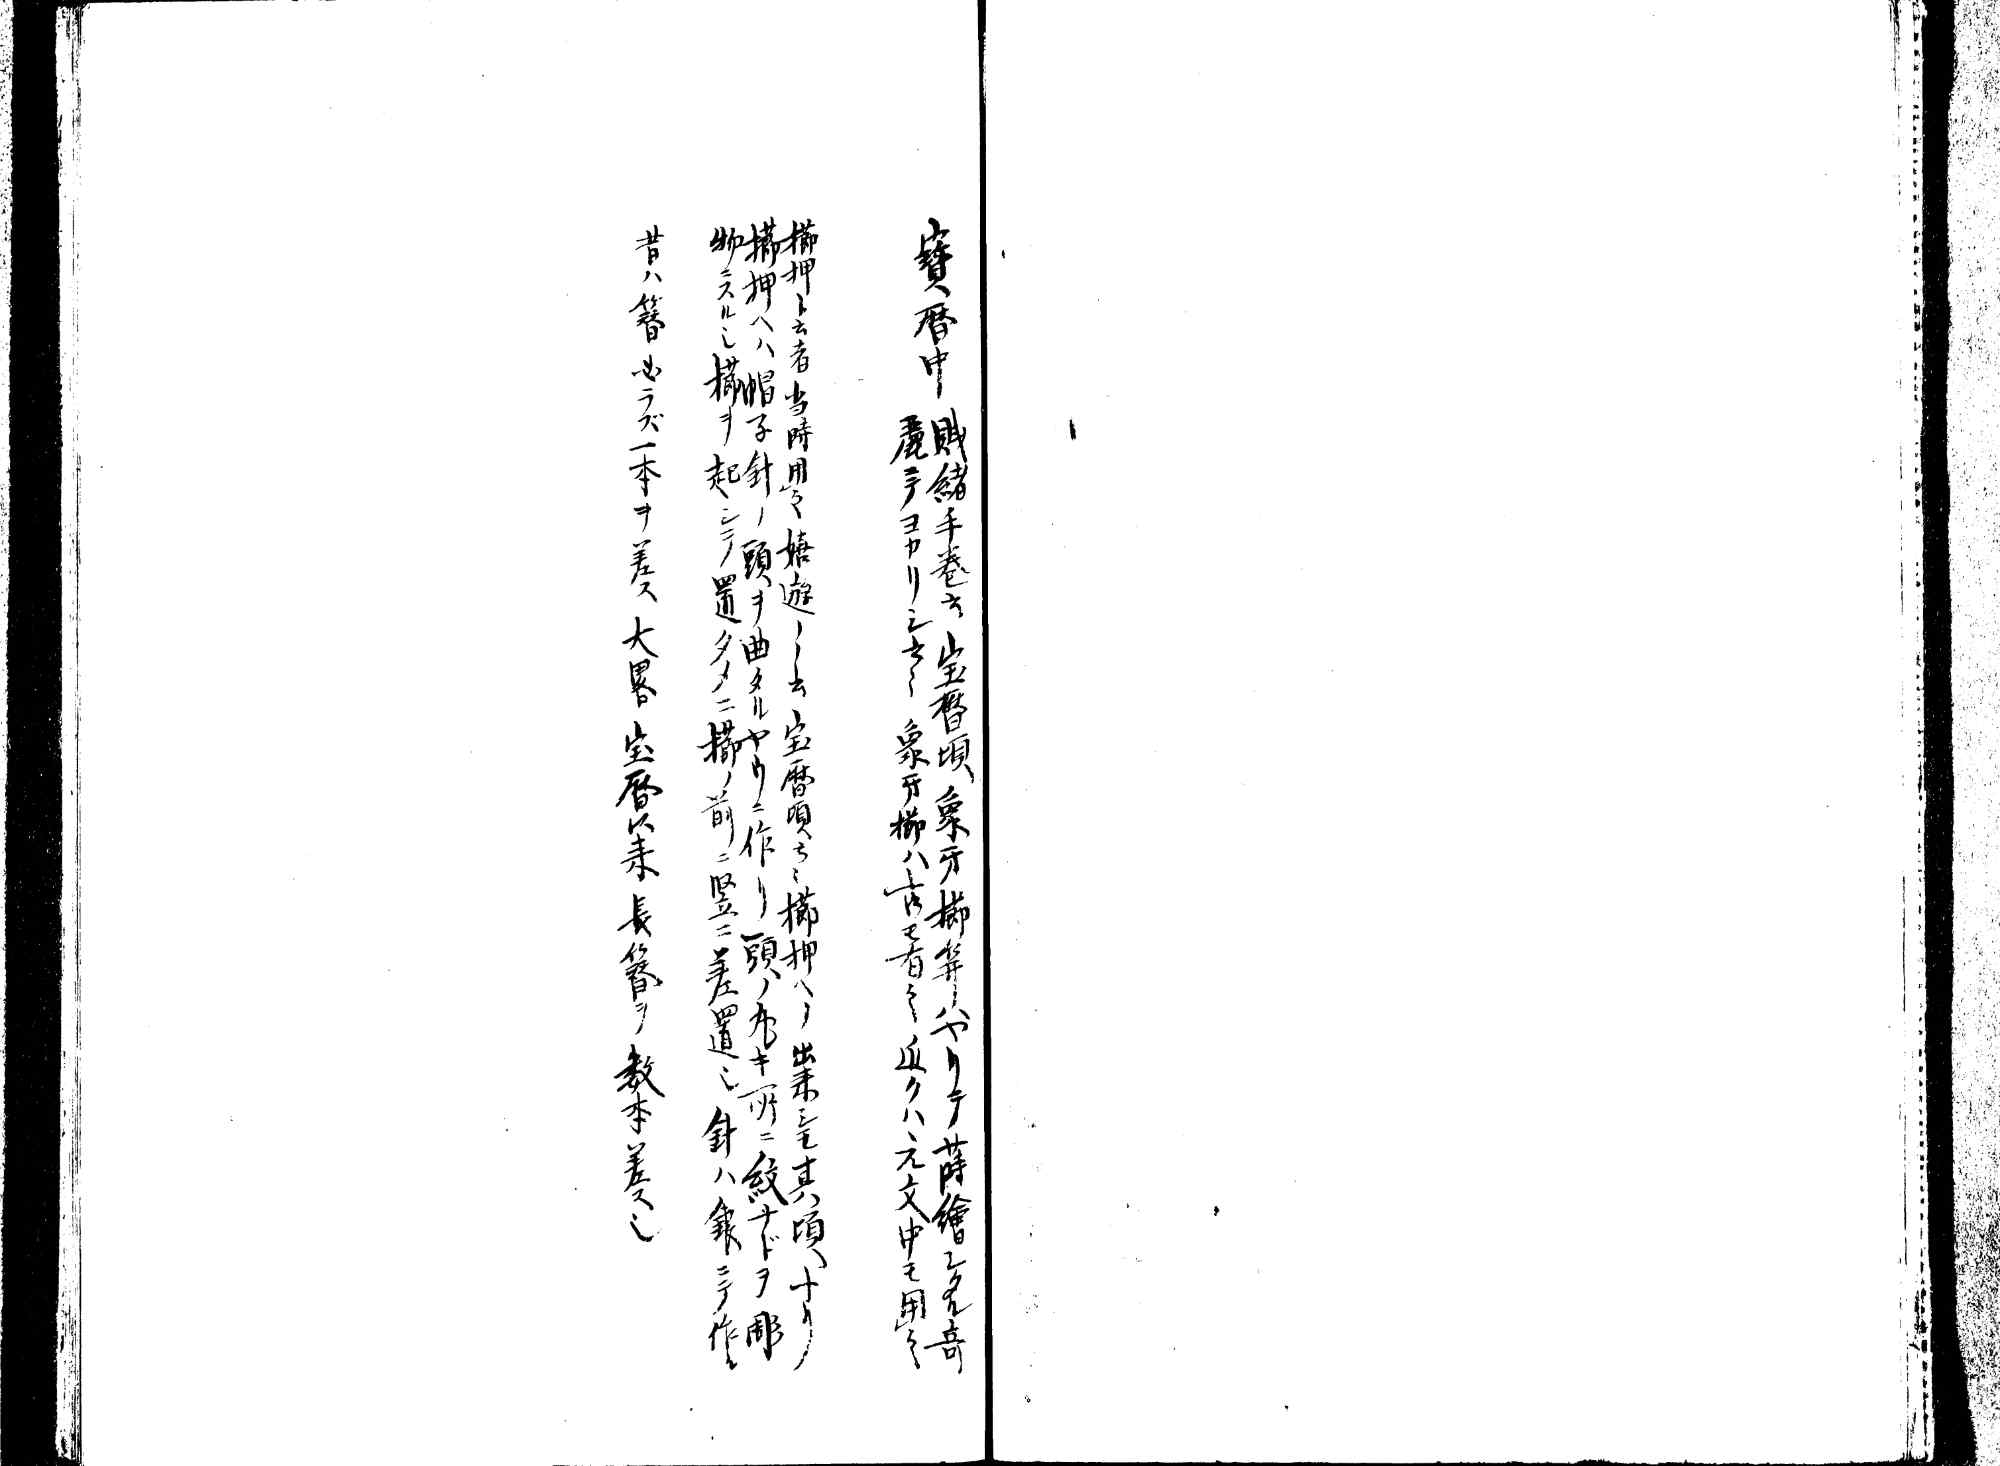 寶暦中
賎緒手巻云宝暦頃象牙櫛笄ハヤリテ蒔繪シタル奇
麗ニテヨカリシ云々象牙櫛ハ古モ有之近クハ元文中モ用之
櫛押ト云者当時用之嬉遊ニ云宝暦頃云々櫛押ヘノ出来シモ其頃ナリ
櫛押ヘハ帽子針ノ頭ヲ曲タルヤウニ作リ頭ノ丸キ所ニ紋ナドヲ彫
物ニスル也櫛ヲ起シテ置タメニ櫛ノ前ニ竪ニ差置也針ハ銀ニテ作
昔ハ簪必ラズ一本ヲ差ス大畧宝暦以来長簪ヲ数本差ス也